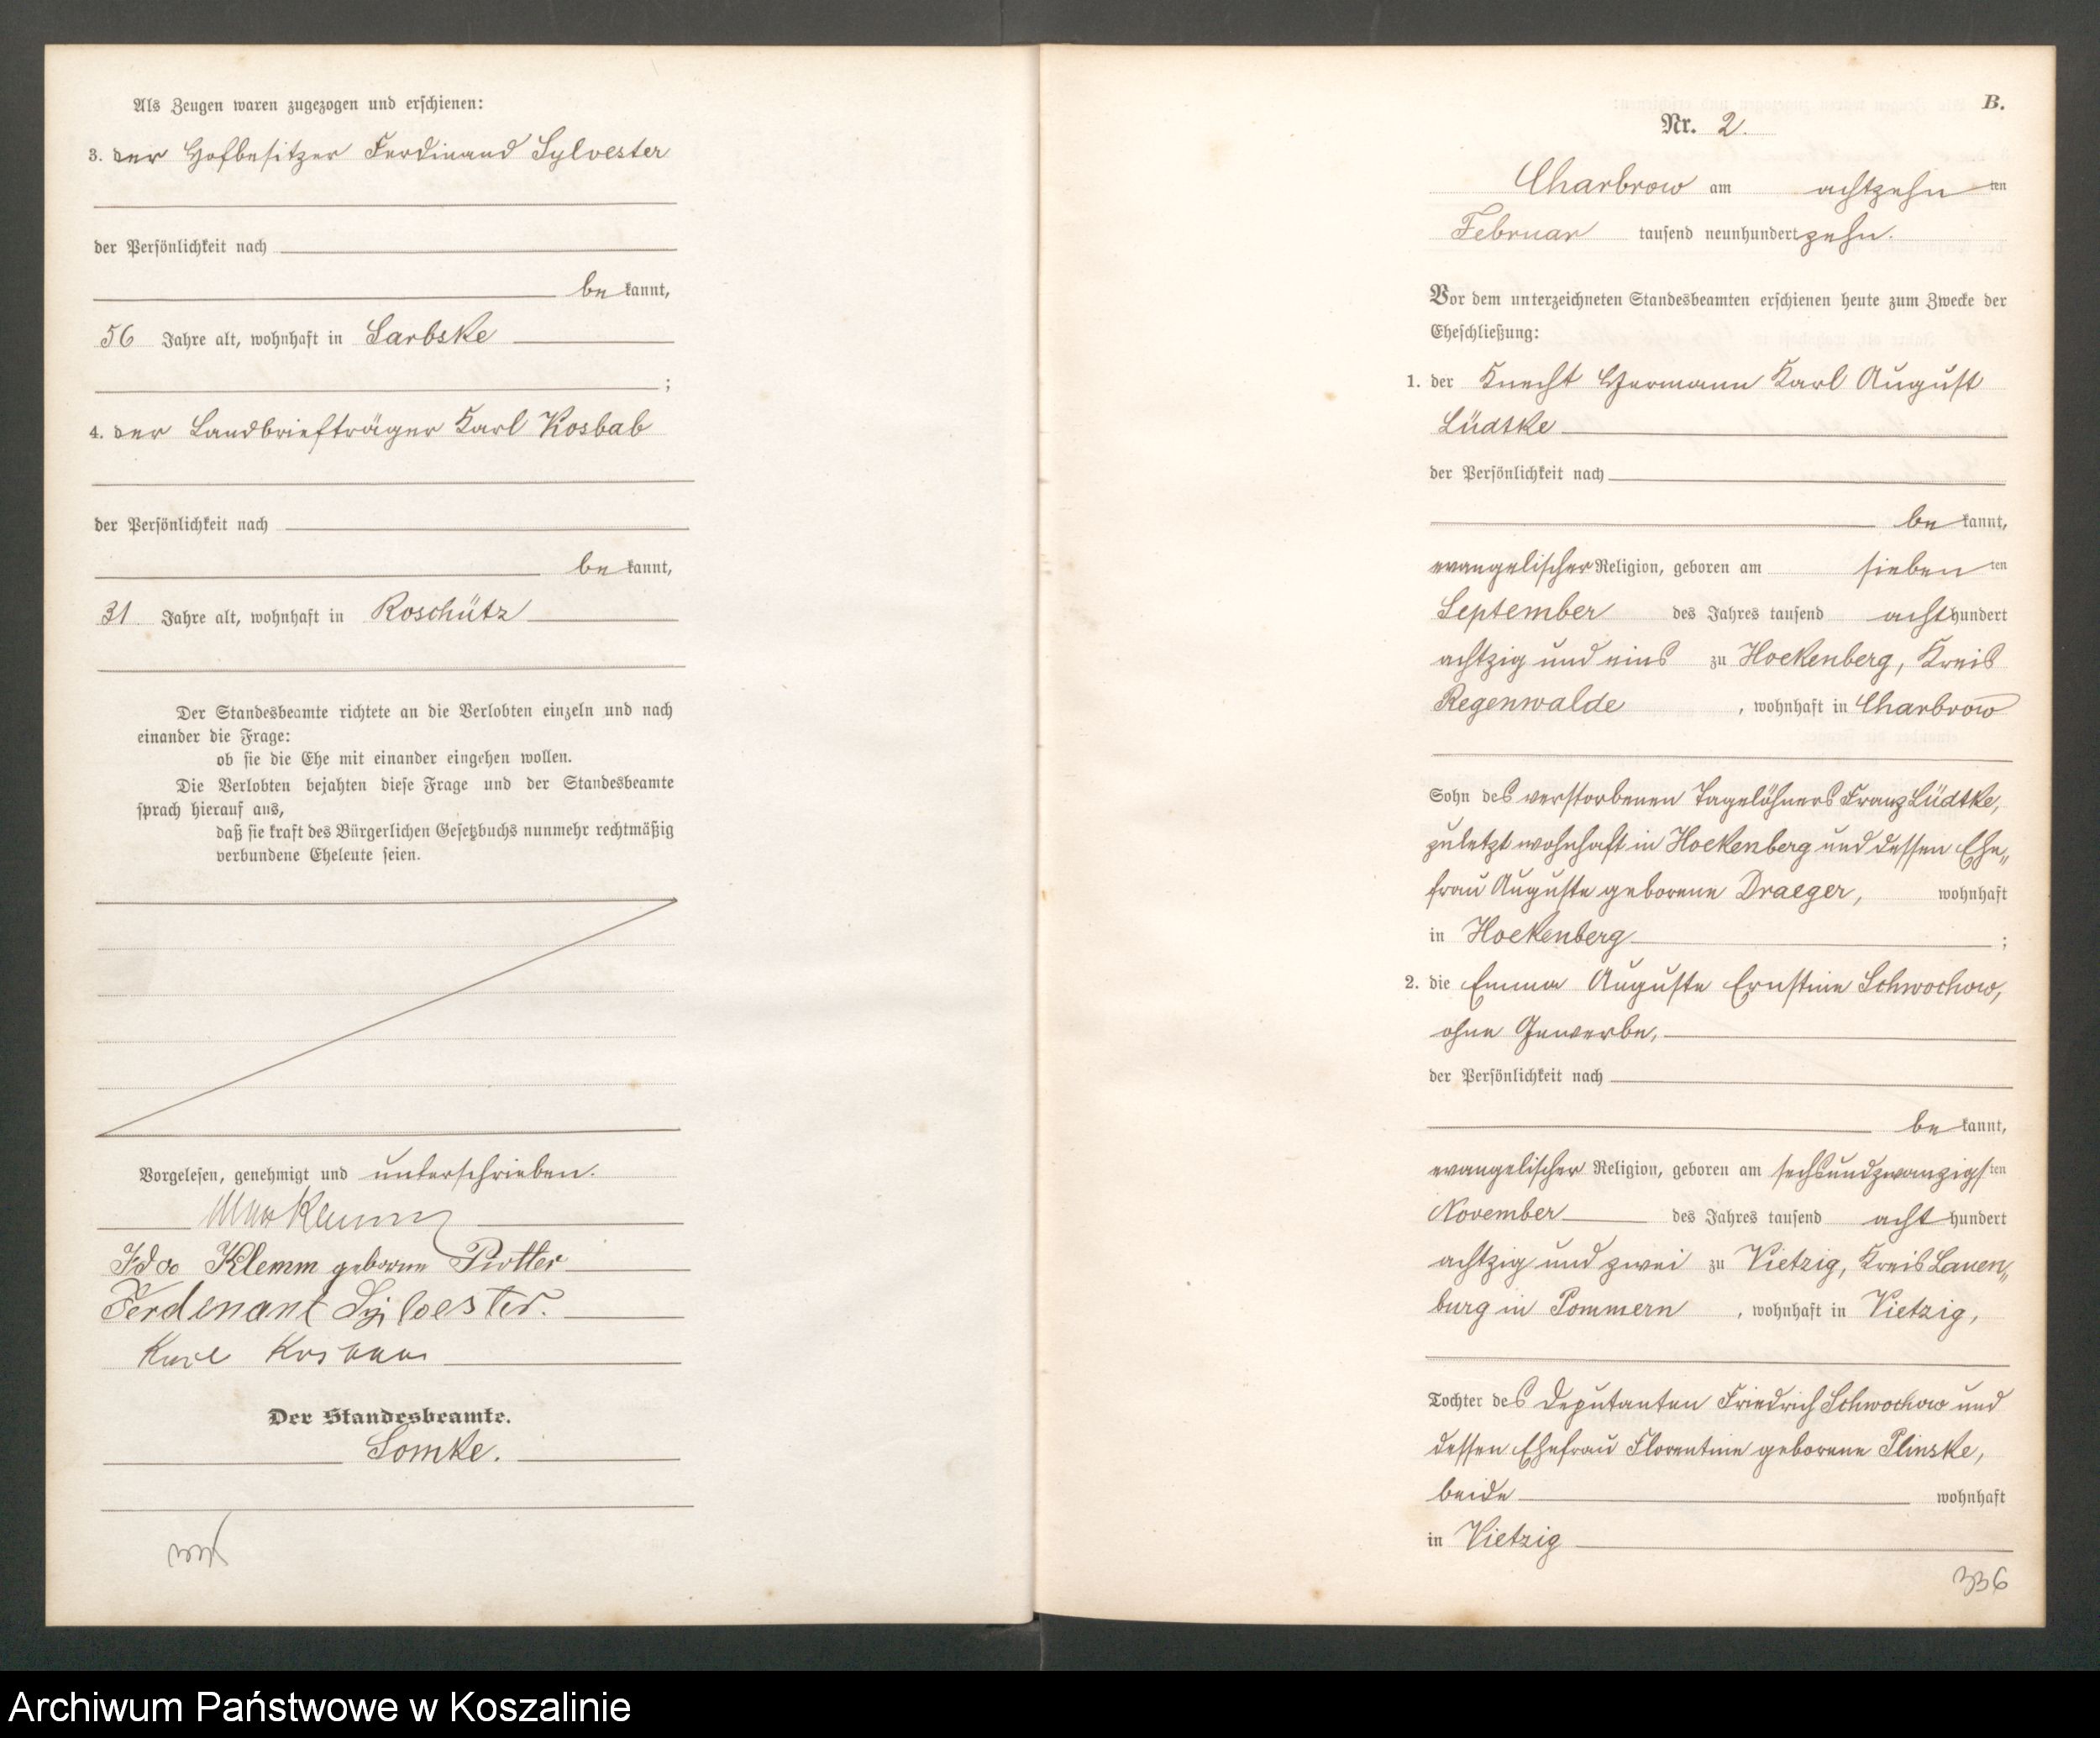 Als Zeugen waren zugezogen und erschienen:
3. der Hofbesitzer Ferdinand Sylvester
der Persönlichkeit nach
be kannt,
56 Jahre alt, wohnhaft in Sarbske
;
4. der Landbriefträger Karl Kosbab
der Persönlichkeit nach
be kannt,
31 Jahre alt, wohnhaft in Roschütz
Der Standesbeamte richtete an die Verlobten einzeln und nach
einander die Frage:
ob sie die Ehe mit einander eingehen wollen.
Die Verlobten bejahten diese Frage und der Standesbeamte
sprach hierauf aus,
daß sie kraft des Bürgerlichen Gesetzbuchs nunmehr rechtmäßig
verbundene Eheleute seien.
Vorgelesen, genehmigt und unterschrieben.
Klemm
Ida Klemm geborene
Ferdinant Sylvester.
Karl Kosbab
Der Standesbeamte.
Somke.
B.
Nr. 2.
Charbrow am achtzehn ten
Februar tausend neunhundert zehn.
Vor dem unterzeichneten Standesbeamten erschienen heute zum Zwecke der
Eheschließung:
1. der Knecht Hermann Karl August
Lüdtke
der Persönlichkeit nach
be kannt,
evangelischer Religion, geboren am sieben ten
September des Jahres tausend acht hundert
achtzig und eins zu Hoekenberg, Kreis
Regenwalde , wohnhaft in Charbrow
Sohn des verstorbenen Tagelöhners Franz Lüdtke,
zuletzt wohnhaft in Hoekenberg und dessen Ehe„
frau Auguste geborene Draeger, wohnhaft
in Hoekenberg ;
2. die Emma Auguste Ernstine Schwochow,
ohne Gewerbe,
der Persönlichkeit nach
be kannt,
evangelischer Religion, geboren am sechsundzwanzigs ten
November des Jahres tausend acht hundert
achtzig und zwei zu Vietzig, Kreis Lauen„
burg in Pommern , wohnhaft in Vietzig,
Tochter des Deputanten Friedrich Schwochow und
dessen Ehefrau Florentine geborene Plinske,
beide wohnhaft
in Vietzig
336
Archiwum Państwowe w Koszalinie